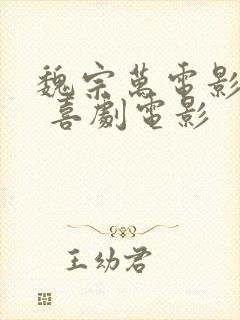 魏宗萬電影
喜劇電影
王幼君